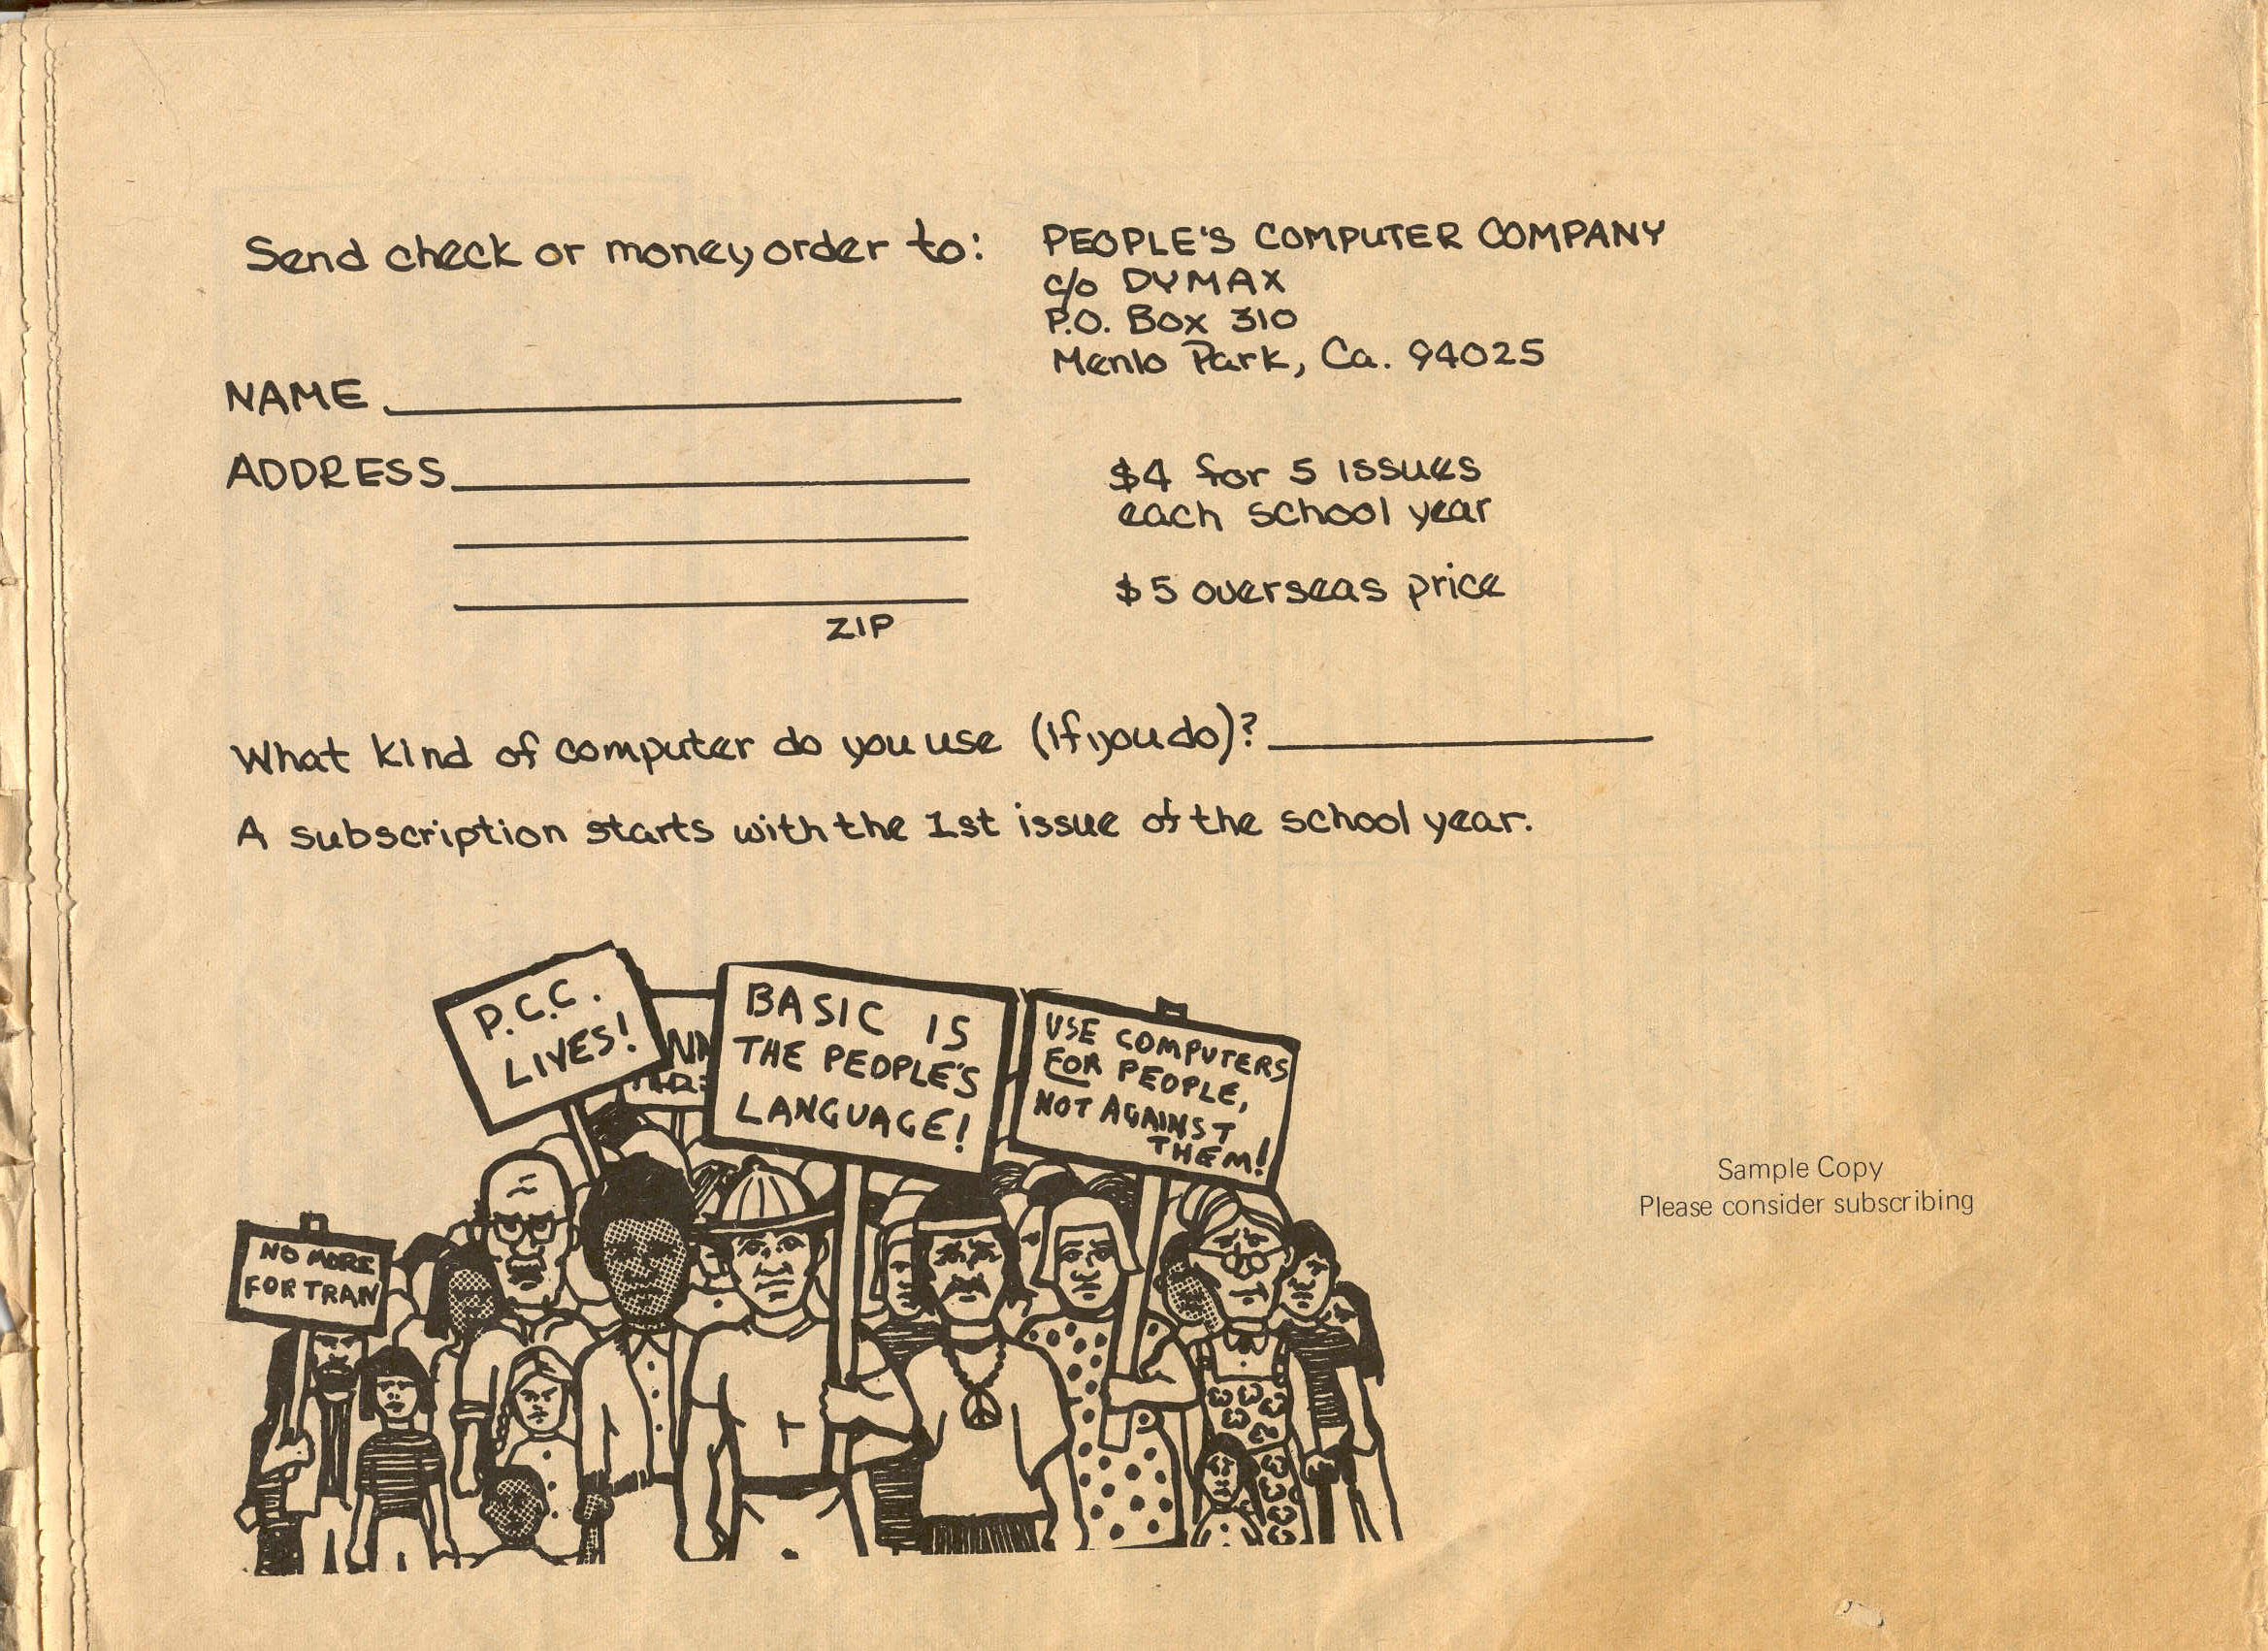 Send check or money order to:
PEOPLE'S COMPUTER COMPANY
c/o DYMAX
P.O. Box 310
Menlo Park, Ca. 94025
NAME
ADDRESS
ZIP
$4 for 5 issues
each school year
$5 overseas price
What kind of computer do you use (if you do)?
A subscription starts with the 1st issue of the school year.
P.C.C.
LIVES!
BASIC IS
THE PEOPLE'S
LANGUAGE!
USE COMPUTERS
FOR PEOPLE,
NOT AGAINST
THEM!
NO MORE
FORTRAN
Sample Copy
Please consider subscribing